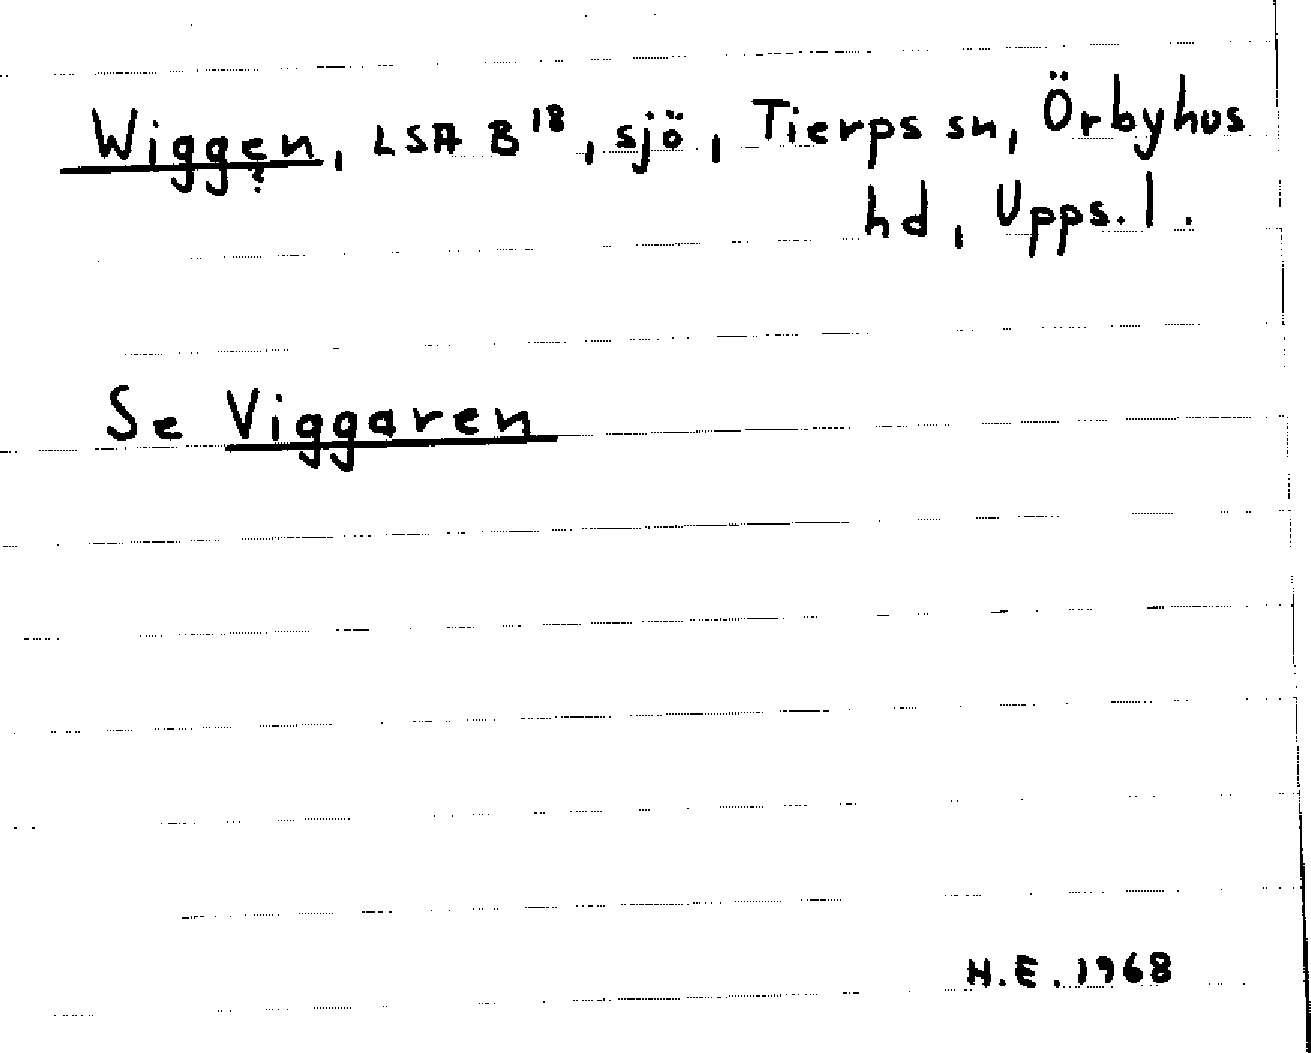 Wiggen, LSA B18, sjö, Tierps sn, Örbyhus
?
hd, Upps. l.
Se Viggaren
H.E. 1968